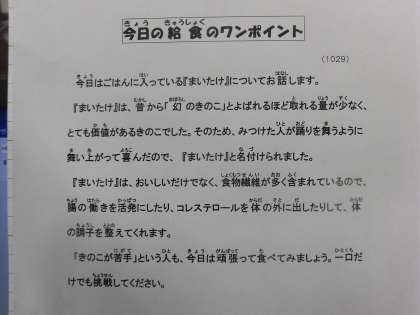 今日の給食のワンポイント
(1029)
今日はごはんに入っている『まいたけ』についてお話します。
『まいたけ』は、昔から「幻のきのこ」とよばれるほど取れる量が少なく、
とても価値があるきのこでした。そのため、みつけた人が踊りを舞うように
舞い上がって喜んだので、『まいたけ』と名付けられました。
『まいたけ』は、おいしいだけでなく、食物繊維が多く含まれているので、
腸の働きを活発にしたり、コレステロールを体の外に出したりして、体
の調子を整えてくれます。
「きのこが苦手」という人も、今日は頑張って食べてみましょう。一口だ
けでも挑戦してください。